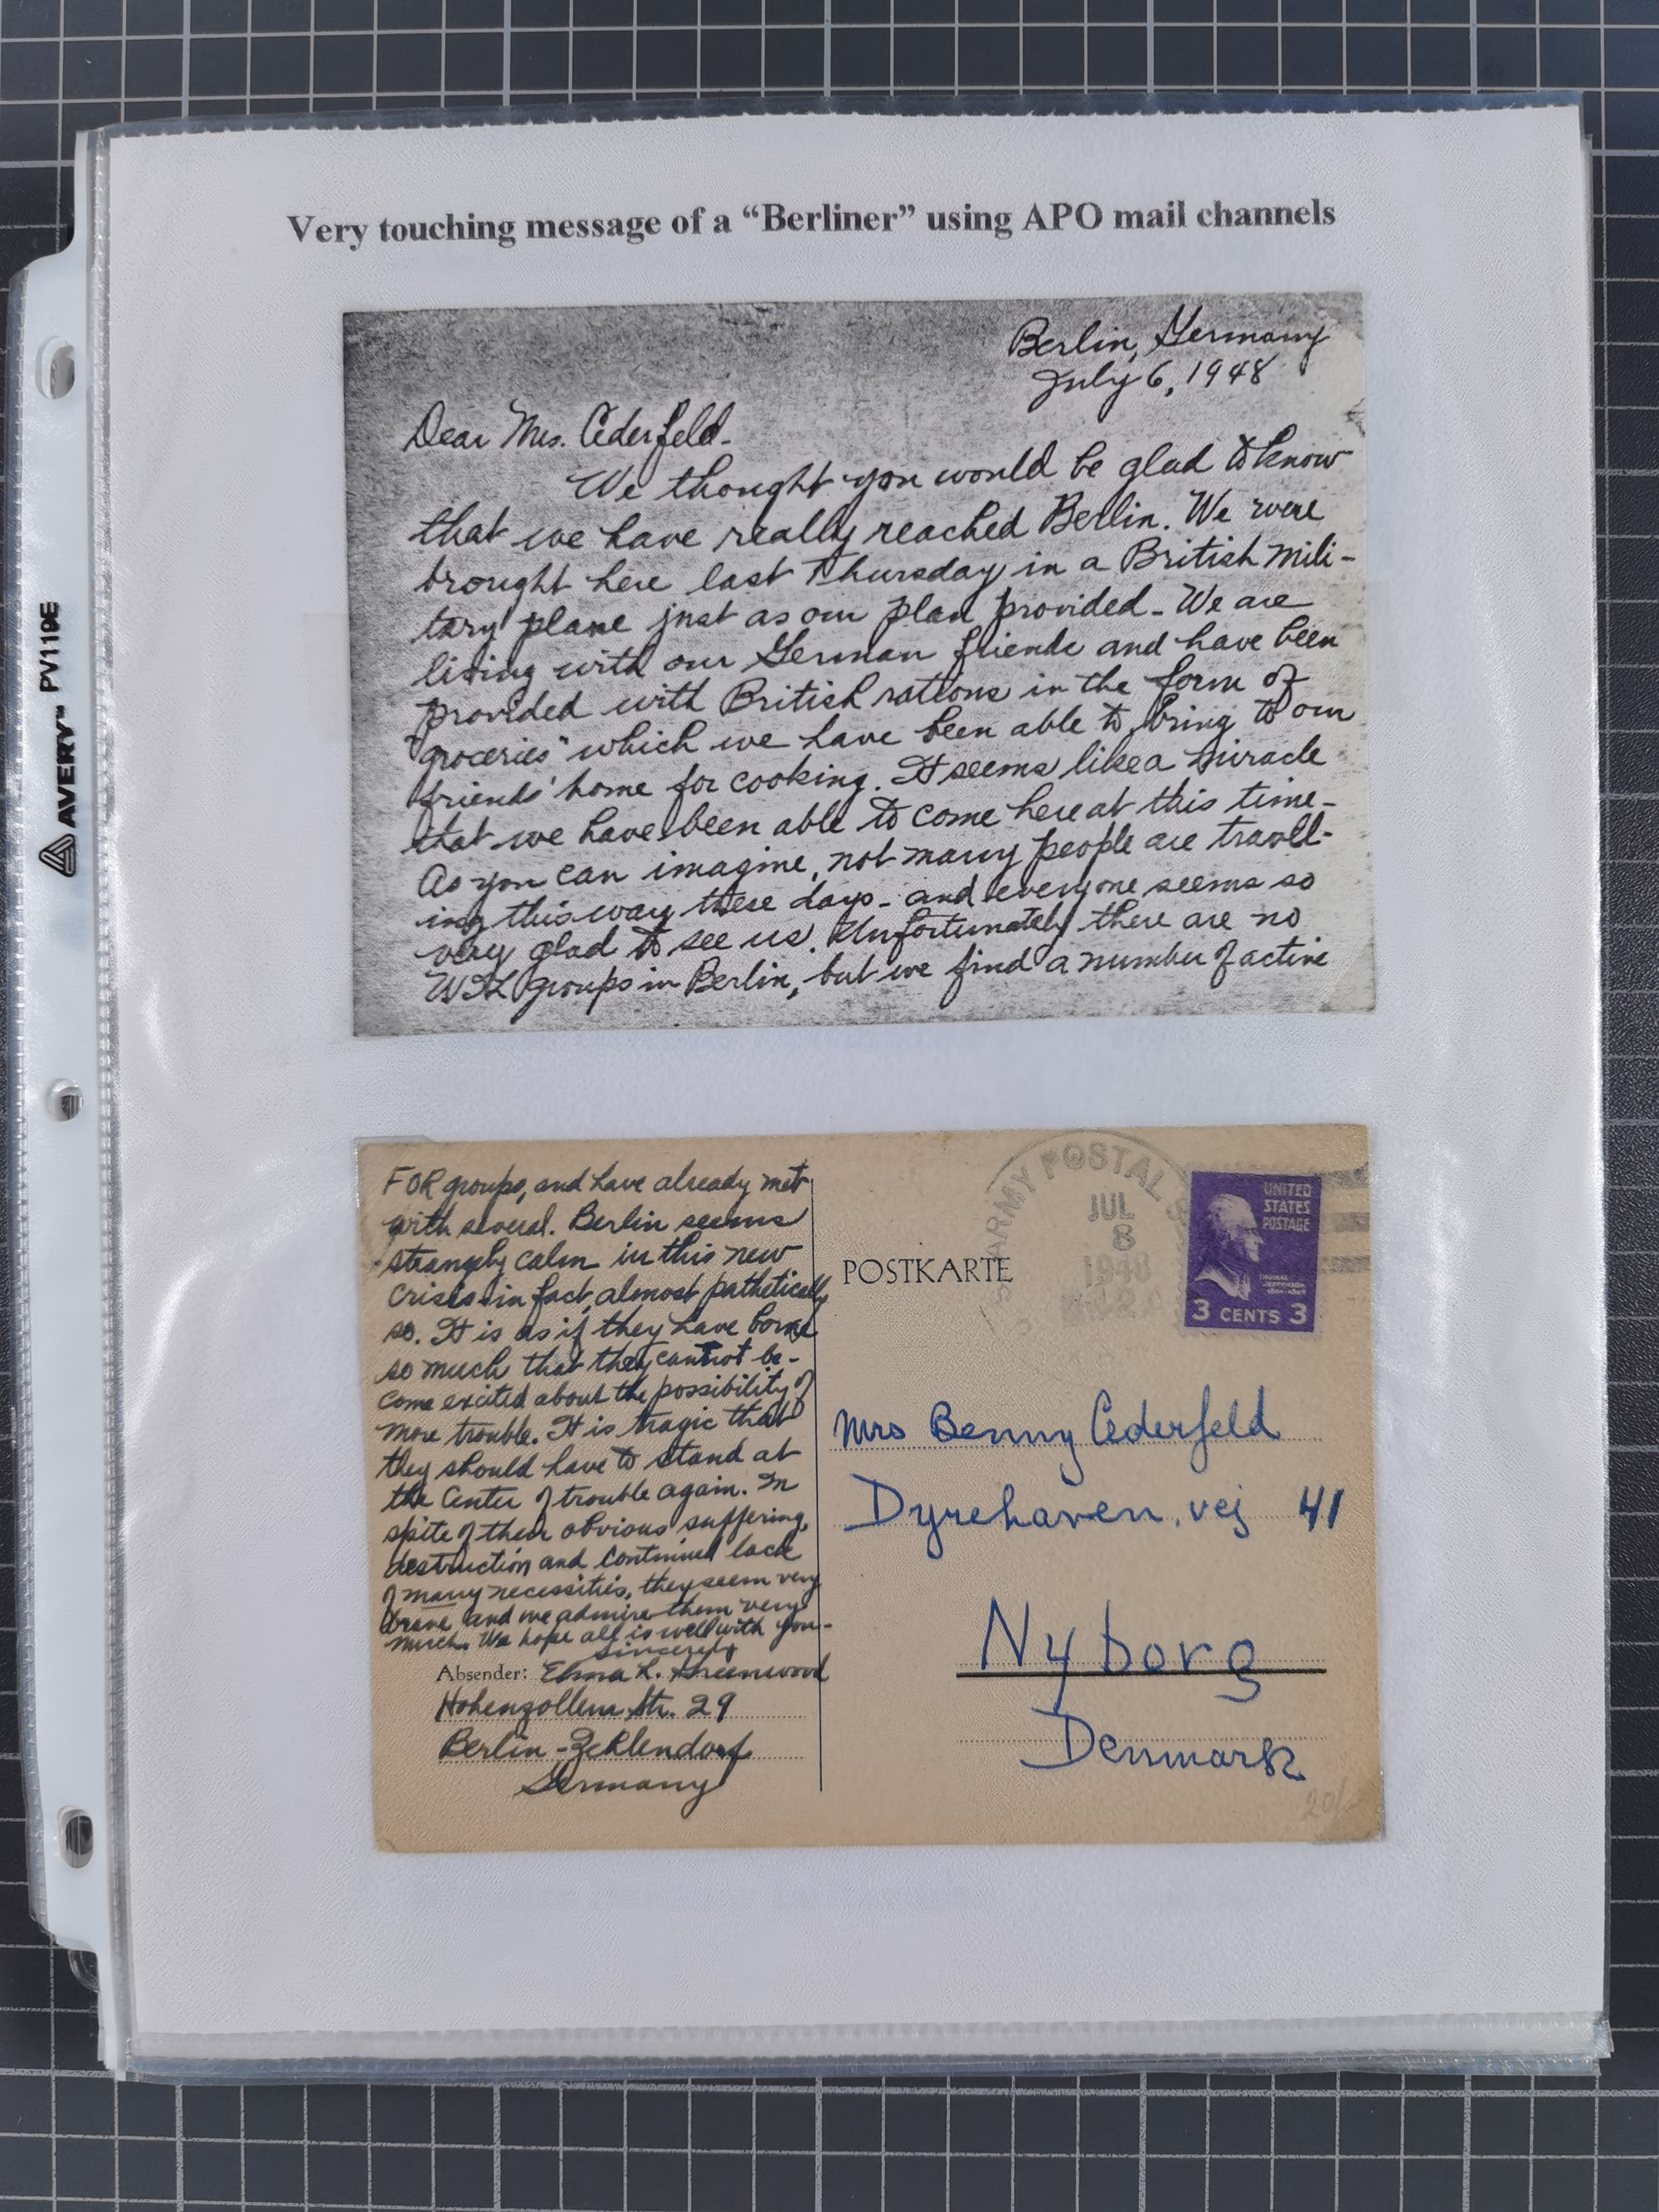 Very touching message of a “Berliner” using APO mail channels
Berlin, Germany
July 6, 1948
Dear Mrs. Cederfeld-
We thought you would be glad to know
that we have really reached Berlin. We were
brought here last Thursday in a British mili-
tary plane just as our plan provided - We are
living with our German friends and have been
provided with British rations in the form of
"groceries" which we have been able to bring to our
friends' home for cooking. It seems like a miracle
that we have been able to come here at this time-
As you can imagine, not many people are travell-
ing this way these days - and everyone seems so
very glad to see us. Unfortunately there are no
WIL groups in Berlin, but we find a number of active
AVERY™ PV119E
FOR groups, and have already met
with several. Berlin seems
strangely calm in this new
crisis - in fact, almost pathetically
so. It is as if they have borne
so much that they cannot be-
come excited about the possibility of
more trouble. It is tragic that
they should have to stand at
the center of trouble again. In
spite of their obvious suffering,
destruction and continued lack
of many necessities, they seem very
brave, and we admire them very
much. We hope all is well with you-
Sincerely
Absender: Elma L. Greenwood
Hohenzollern Str. 29
Berlin-Zehlendorf
Germany
ARMY POSTAL
JUL
8
1948
UNITED
STATES
POSTAGE
THOMAS
JEFFERSON
3 CENTS 3
POSTKARTE
Mrs Benny Cederfeld
Dyrehaven.vej 41
Nyborg
Denmark